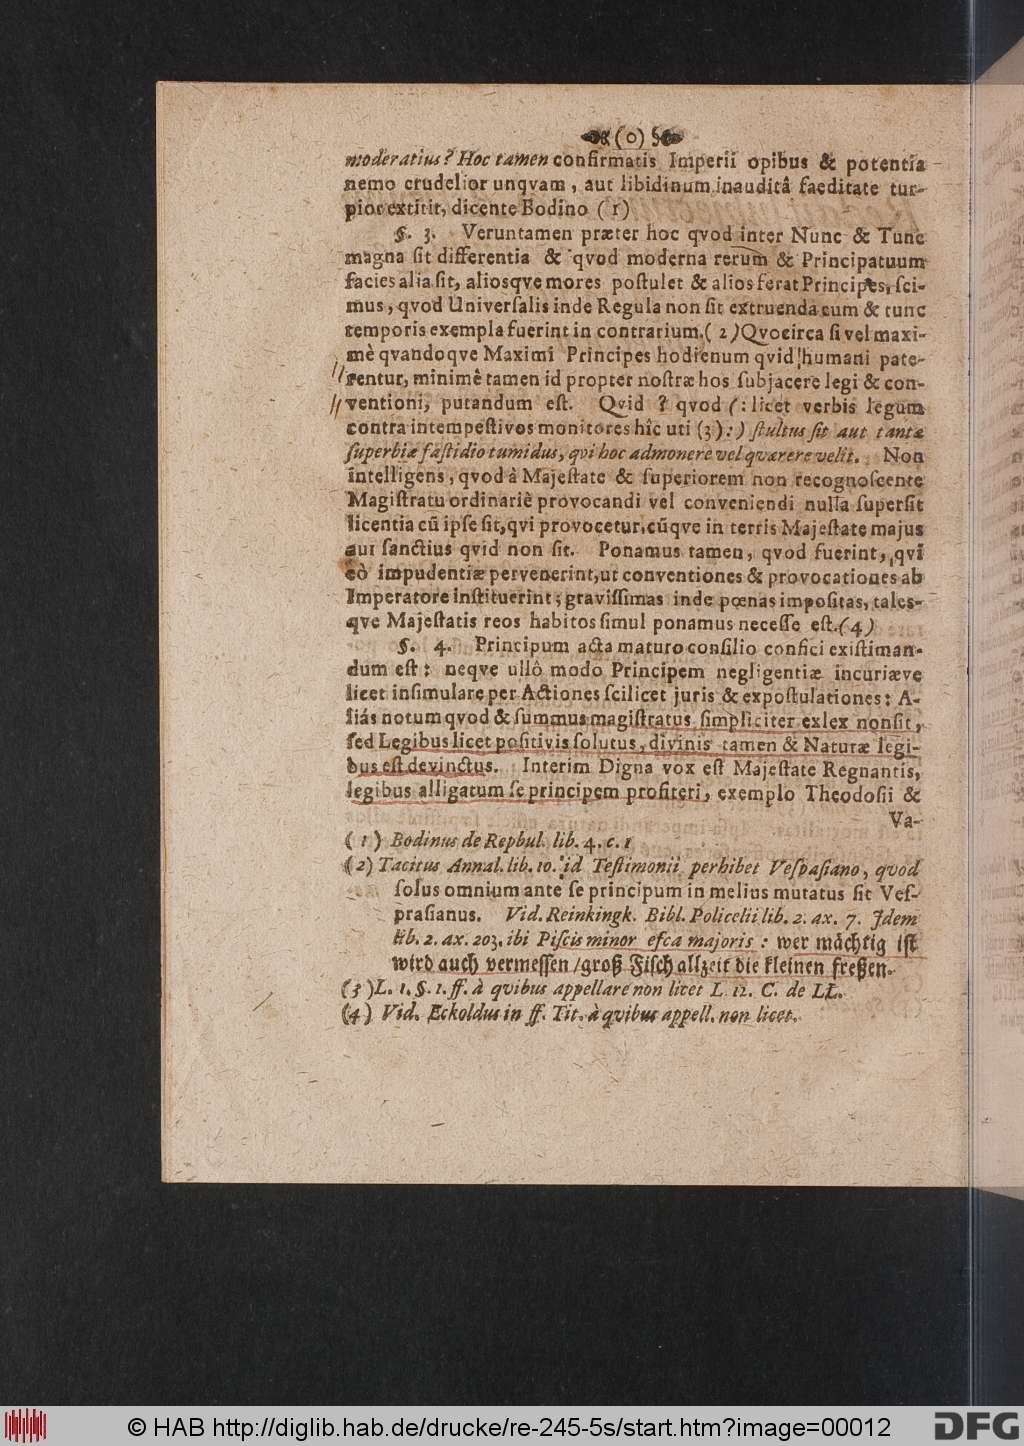 (o)
moderatius? Hoc tamen confirmatis Imperii opibus & potentia
nemo crudelior unqvam, aut libidinum inauditâ faeditate tur-
pior extitit, dicente Bodino (1)
§. 3. Veruntamen præter hoc qvod inter Nunc & Tunc
magna sit differentia & qvod moderna rerum & Principatuum
facies alia sit, aliosqve mores postulet & alios ferat Principes, sci-
mus, qvod Universalis inde Regula non sit extruenda cum & tunc
temporis exempla fuerint in contrarium. (2) Qvocirca si vel maxi-
mè qvandoqve Maximi Principes hodienum qvid humani pate-
rentur, minimê tamen id propter nostræ hos subjacere legi & con-
ventioni, putandum est. Qvid? qvod (: licet verbis legum
contra intempestivos monitores hîc uti (3) :) stultus sit aut tantæ
superbiæ fastidio tumidus, qvi hoc admonere vel qværere velit. Non
intelligens, qvod à Majestate & superiorem non recognoscente
Magistratu ordinariè provocandi vel conveniendi nulla supersit
licentia cũ ipse sit, qvi provocetur, cũqve in terris Majestate majus
aut sanctius qvid non sit. Ponamus tamen, qvod fuerint, qvi
eò impudentiæ pervenerint, ut conventiones & provocationes ab
Imperatore instituerint; gravissimas inde pœnas impositas, tales-
qve Majestatis reos habitos simul ponamus necesse est. (4)
§. 4. Principum acta maturo consilio confici existiman-
dum est: neqve ullô modo Principem negligentiæ incuriæve
licet insimulare per Actiones scilicet juris & expostulationes: A-
liás notum qvod & summus magistratus simpliciter exlex non sit,
sed Legibus licet positivis solutus, divinis tamen & Naturæ legi-
bus est devinctus. Interim Digna vox est Majestate Regnantis,
legibus alligatum se principem profiteri, exemplo Theodosii &
Va-
(1) Bodinus de Repbul. lib. 4. c. 1
(2) Tacitus Annal. lib. 10. id Testimonii perhibet Vespasiano, quod
solus omnium ante se principum in melius mutatus sit Ves-
prasianus. Vid. Reinkingk. Bibl. Policeîi lib. 2. ax. 7. Idem
lib. 2. ax. 203. ibi Piscis minor esca majoris: wer mächtig ist
wird auch vermessen / groß Fisch allzeit die kleinen freßen.
(3) L. 1. §. 1. ff. à qvibus appellare non licet L. 12. C. de LL.
(4) Vid. Eckoldus in ff. Tit. à qvibus appell. non licet.
© HAB http://diglib.hab.de/drucke/re-245-5s/start.htm?image=00012
DFG